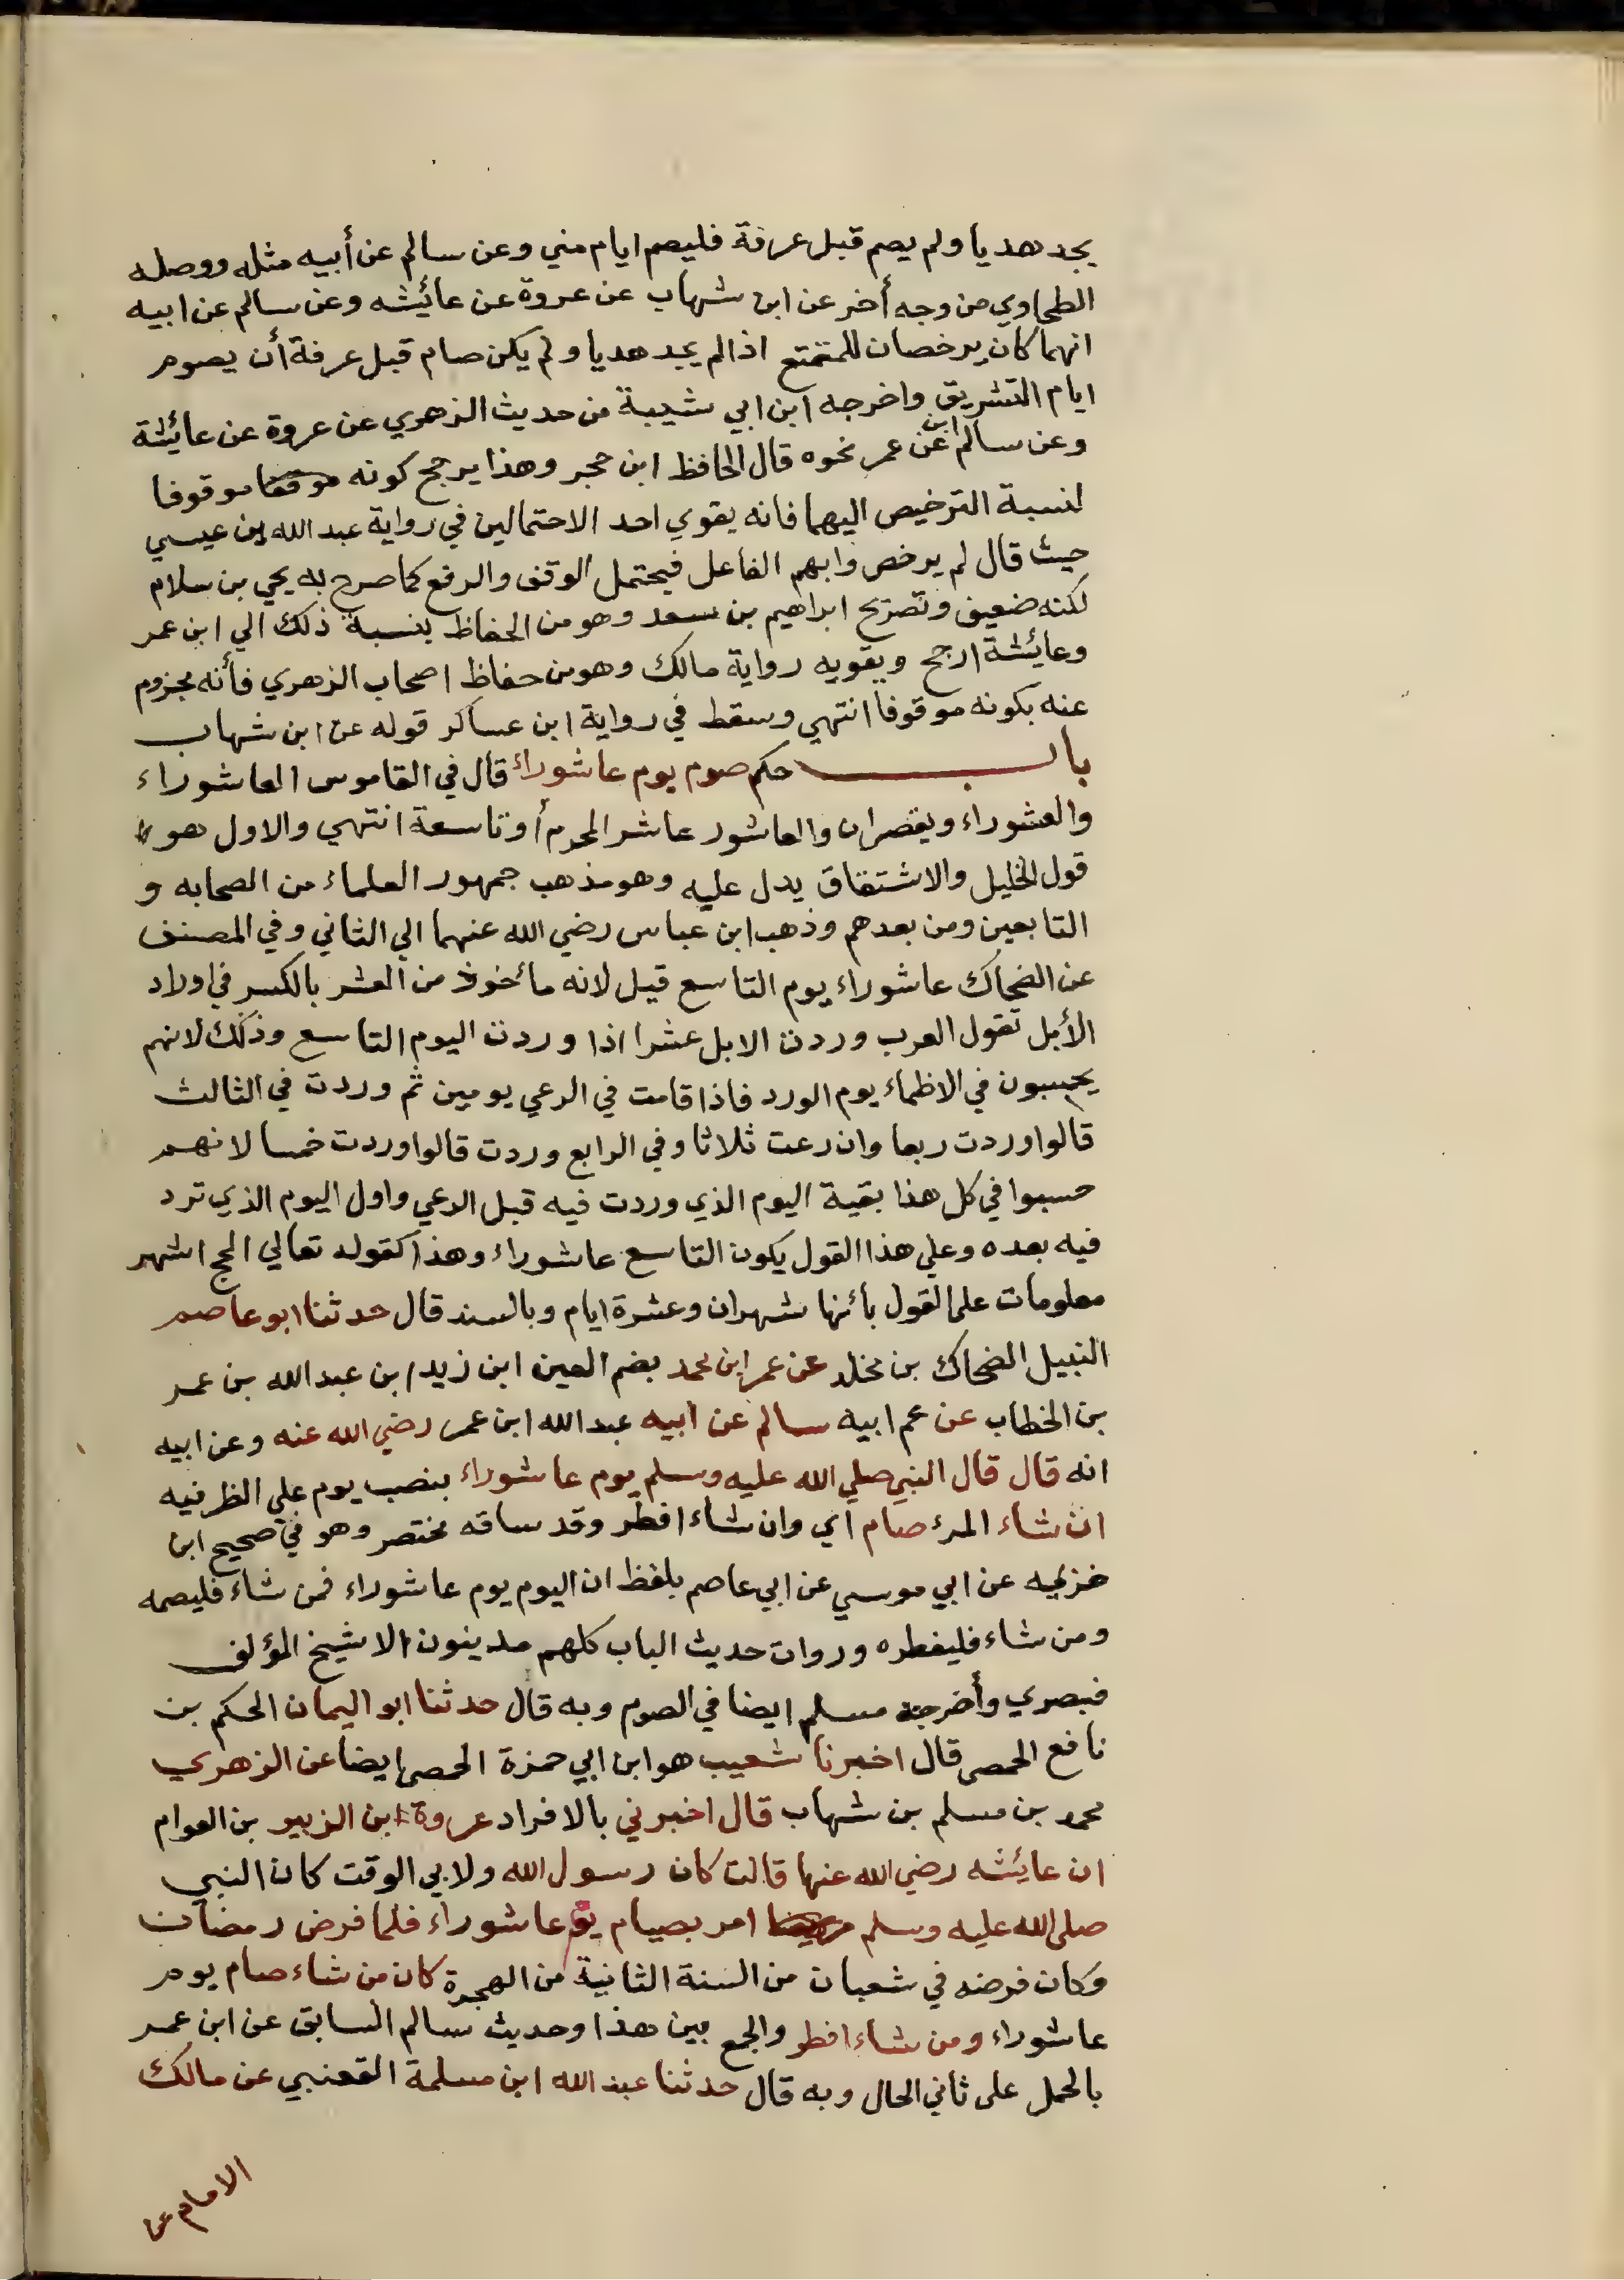 يجد هديا ولم يصم قبل عرفة فليصم ايام مني وعن سالم عن أبيه مثله ووصله
الطحاوي من وجه أخر عن ابن شهاب عن عروة عن عائشه وعن سالم عن ابيه
انهما كان يرخصان للمتمتع اذا لم يجد هديا ولم يكن صام قبل عرفة أن يصوم
ايام التشريق واخرجه ابن ابي شيبة من حديث الزهري عن عروة عن عائشة
وعن سالم عن ابن عمر نحوه قال الحافظ ابن حجر وهذا يرجح كونه موقفا موقوفا
لنسبة الترخيص اليهما فانه يقوي احد الاحتمالين في رواية عبد الله بن عيسي
حيث قال لم يرخص وابهم الفاعل فيحتمل الوقف والرفع كما صرح به يحي بن سلام
لكنه ضعيف وتصريح ابراهيم بن سعد وهو من الحفاظ بنسبة ذلك الي ابن عمر
وعائشة ارجح ويقويه رواية مالك وهو من حفاظ اصحاب الزهري فأنه مجزوم
عنه بكونه موقوفا انتهي وسقط في رواية ابن عساكر قوله عن ابن شهاب
باب حكم صوم يوم عاشوراء قال في القاموس العاشوراء
والعشوراء ويقصران والعاشور عاشر المحرم أو تاسعة انتهي والاول هو
قول الخليل والاشتقاق يدل عليه وهو مذهب جمهور العلماء من الصحابه و
التابعين ومن بعدهم وذهب ابن عباس رضي الله عنهما الي الثاني وفي المصنف
عن الضحاك عاشوراء يوم التاسع قيل لانه مأخوذ من العشر بالكسر في اوراد
الأبل تقول العرب وردت الابل عشرا اذا وردت اليوم التاسع وذلك لانهم
يحسبون في الاظماء يوم الورد فاذا قامت في الرعي يومين ثم وردت في الثالث
قالوا وردت ربعا وان رعت ثلاثا وفي الرابع وردت قالوا وردت خمسا لانهم
حسبوا في كل هذا بقية اليوم الذي وردت فيه قبل الرعي واول اليوم الذي ترد
فيه بعده وعلي هذا القول يكون التاسع عاشوراء وهذا كقوله تعالي الحج اشهر
معلومات علي القول بأنها شهران وعشرة ايام وبالسند قال حدثنا ابو عاصم
النبيل الضحاك بن مخلد عن عمر ابن محمد بضم العين ابن زيد ابن عبد الله بن عمر
بن الخطاب عن عم ابيه سالم عن ابيه عبد الله ابن عمر رضي الله عنه وعن ابيه
انه قال قال النبي صلي الله عليه وسلم يوم عاشوراء بنصب يوم علي الظرفيه
ان شاء المرء صام اي وان شاء افطر وقد ساقه مختصر وهو في صحيح ابن
خزيمه عن ابي موسي عن ابي عاصم بلفظ ان اليوم يوم عاشوراء فمن شاء فليصمه
ومن شاء فليفطره وروات حديث الباب كلهم مدينون الا شيخ المؤلف
فبصري وأخرجه مسلم ايضا في الصوم وبه قال حدثنا ابو اليمان الحكم بن
نافع الحمصي قال اخبرنا شعيب هو ابن ابي حمزة الحمصي ايضا عن الزهري
محمد بن مسلم بن شهاب قال اخبرني بالافراد عروة ابن الزبير بن العوام
ان عائشه رضي الله عنها قالت كان رسول الله ولابي الوقت كان النبي
صلي الله عليه وسلم امر بصيام يوم عاشوراء فلما فرض رمضان
وكان فرضه في شعبان من السنة الثانية من الهجرة كان من شاء صام يوم
عاشوراء ومن شاء افطر والجمع بين هذا وحديث سالم السابق عن ابن عمر
بالحمل علي ثاني الحال وبه قال حدثنا عبد الله ابن مسلمة القعنبي عن مالك
الامام عن